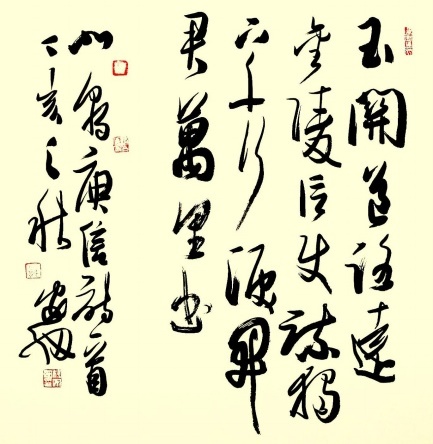 玉關道路遠
金陵信使疏獨
下千行淚開
君萬里書
北朝庾信詩首
丁亥之秋